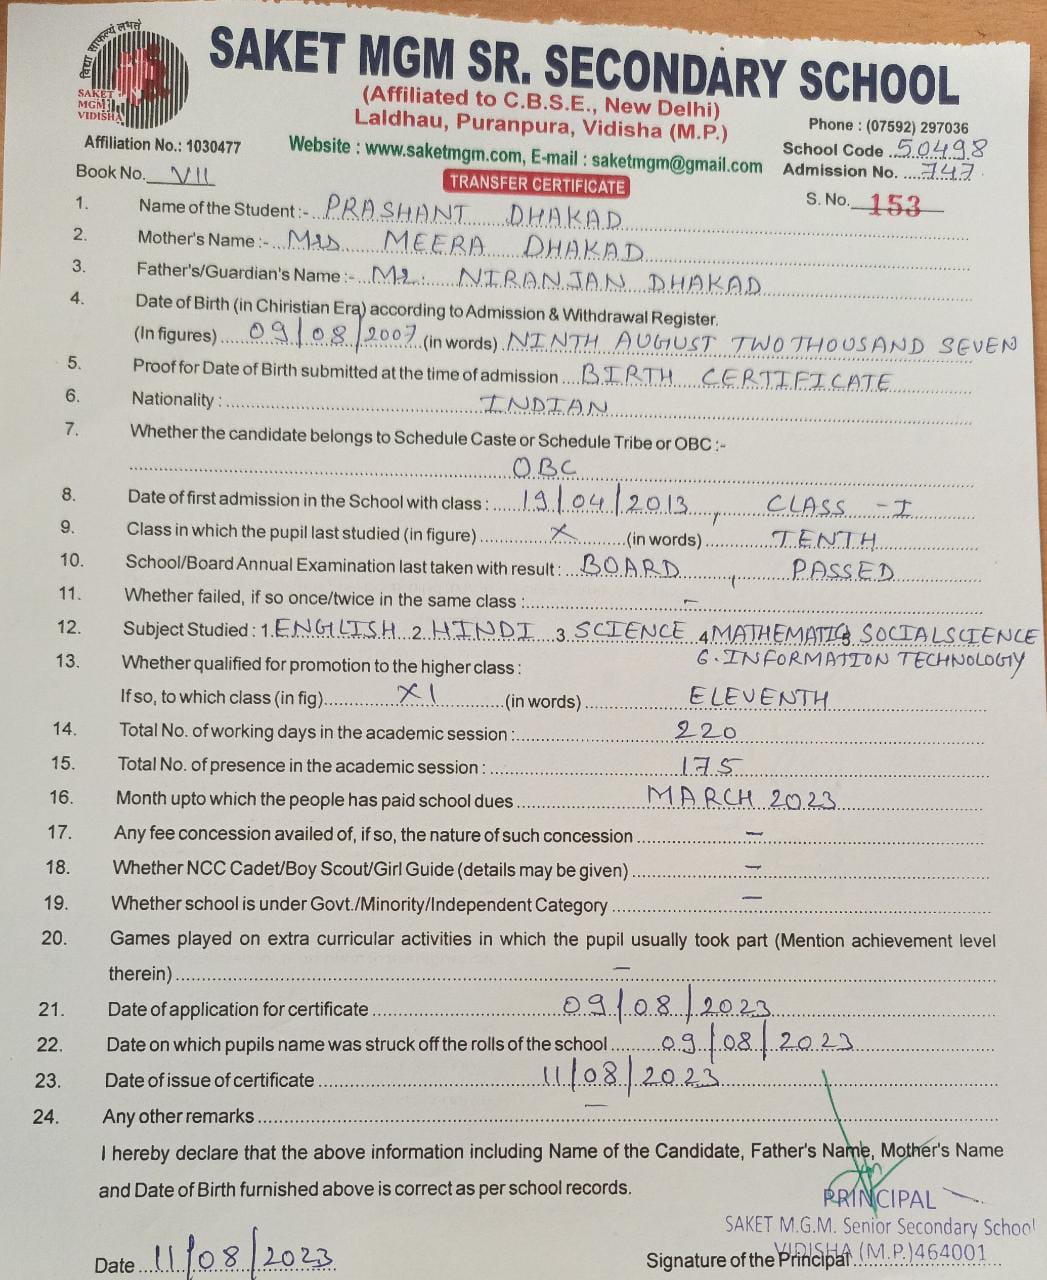 विद्या साफल्यं लभते
SAKET
MGM
VIDISHA
SAKET MGM SR. SECONDARY SCHOOL
(Affiliated to C.B.S.E., New Delhi)
Laldhau, Puranpura, Vidisha (M.P.)
Phone : (07592) 297036
Affiliation No.: 1030477
Website : www.saketmgm.com, E-mail : saketmgm@gmail.com
School Code 50498
Book No. VII
Admission No. 747
TRANSFER CERTIFICATE
S. No. 153
1. Name of the Student :- PRASHANT DHAKAD
2. Mother's Name :- Mrs MEERA DHAKAD
3. Father's/Guardian's Name :- Mr. NIRANJAN DHAKAD
4. Date of Birth (in Chiristian Era) according to Admission & Withdrawal Register.
(In figures) 09/08/2007 (in words) NINTH AUGUST TWO THOUSAND SEVEN
5. Proof for Date of Birth submitted at the time of admission BIRTH CERTIFICATE
6. Nationality : INDIAN
7. Whether the candidate belongs to Schedule Caste or Schedule Tribe or OBC :-
OBC
8. Date of first admission in the School with class : 19/04/2013, CLASS - I
9. Class in which the pupil last studied (in figure) X (in words) TENTH
10. School/Board Annual Examination last taken with result : BOARD, PASSED
11. Whether failed, if so once/twice in the same class : -
12. Subject Studied : 1. ENGLISH 2. HINDI 3 SCIENCE 4 MATHEMATICS SOCIAL SCIENCE
6. INFORMATION TECHNOLOGY
13. Whether qualified for promotion to the higher class :
If so, to which class (in fig) XI (in words) ELEVENTH
14. Total No. of working days in the academic session : 220
15. Total No. of presence in the academic session : 175
16. Month upto which the people has paid school dues MARCH 2023
17. Any fee concession availed of, if so, the nature of such concession -
18. Whether NCC Cadet/Boy Scout/Girl Guide (details may be given) -
19. Whether school is under Govt./Minority/Independent Category -
20. Games played on extra curricular activities in which the pupil usually took part (Mention achievement level
therein) -
21. Date of application for certificate 09/08/2023
22. Date on which pupils name was struck off the rolls of the school 09/08/2023
23. Date of issue of certificate 11/08/2023
24. Any other remarks -
I hereby declare that the above information including Name of the Candidate, Father's Name, Mother's Name
and Date of Birth furnished above is correct as per school records.
PRINCIPAL
SAKET M.G.M. Senior Secondary School
VIDISHA (M.P.) 464001
Date 11/08/2023
Signature of the Principal